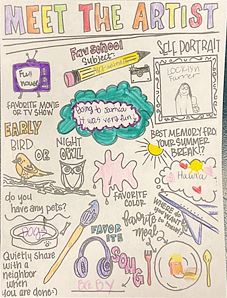 MEET THE ARTIST
Full
House
FAVORITE MOVIE
OR TV SHOW
Fav School
Subject
SELF PORTRAIT
Going to Jamica
it was very fun
EARLY
BIRD
OR
NIGHT
OWL
BEST MEMORY FRO
YOUR SUMMER
BREAK!?
do you
have any pets?
DOGS
FAVORITE
COLOR
WHERE do you
want to
FAVORITE
SONG
favorite
meal
Quietly share
with a
neighbor
when
you are done:)